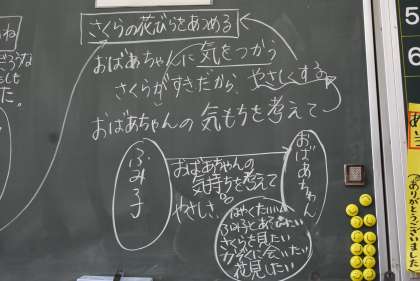 さくらの花びらをあつめる
おばあちゃんに気をつかう
さくらがすきだから、やさしくする
おばあちゃんの気もちを考えて
ふみ子
おばあちゃんの
気持ちを考えて
る
やさしさ
おばあちゃん
はやく
さくらを見たい
会いたい
花見したい
た。
5
6
あ
ありがとうございました